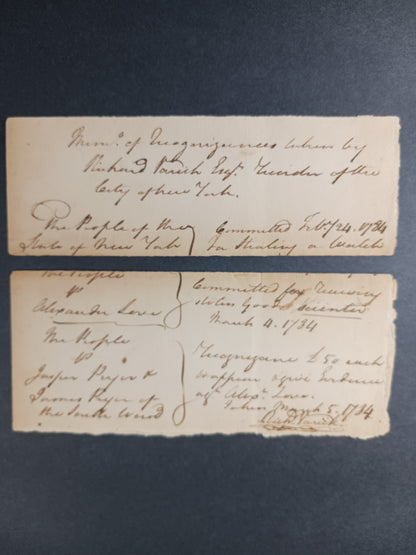 Mem.° of Recognizances taken by
Richard Varick Esq.r Recorder of the
City of New York.
The People of the
State of New York
Committed Feb.y 24. 1784
for Stealing a Watch
The People
vs
Alexander Love
Committed for Receiving
stolen Goods scienter
March 4. 1784
The People
vs
Jasper Pryer &
James Pryer of
the South Ward
Recognizance £50 each
to appear & give Evidence
ag.t Alex.r Love.
Taken March 5. 1784
Rich.d Varick